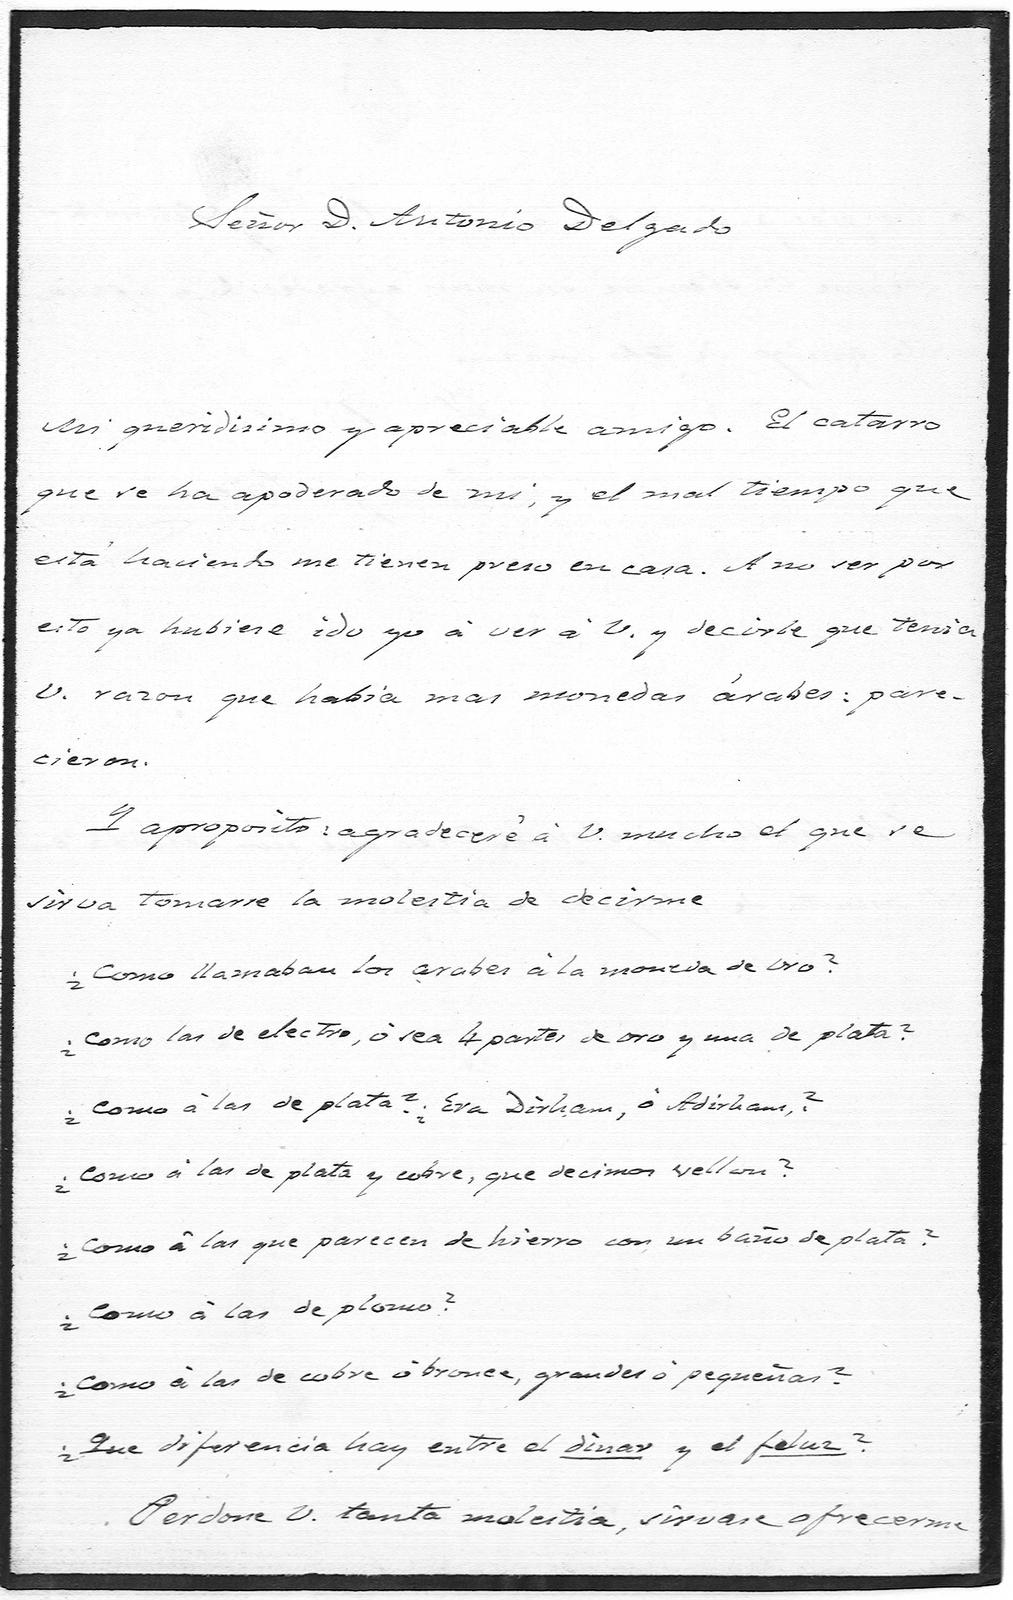 Señor D. Antonio Delgado
Mi queridisimo y apreciable amigo. El catarro
que se ha apoderado de mi, y el mal tiempo que
está haciendo me tienen preso en casa. A no ser por
esto ya hubiese ido yo à ver à V. y decirle que tenia
V. razon que habia mas monedas árabes: pare-
cieron.
Y aproposito: agradeceré à V. mucho el que se
sirva tomarse la molestia de decirme
¿Como llamaban los arabes à la moneda de oro?
¿Como las de electro, ò sea 4 partes de oro y una de plata?
¿Como à las de plata? ¿Era Dirham, ò Adirham,?
¿Como à las de plata y cobre, que decimos vellon?
¿Como à las que parecen de hierro con un baño de plata?
¿Como à las de plomo?
¿Como à las de cobre ò bronce, grandes ò pequeñas?
¿Que diferencia hay entre el dinar y el feluz?
Perdone V. tanta molestia, sirvase ofrecerme